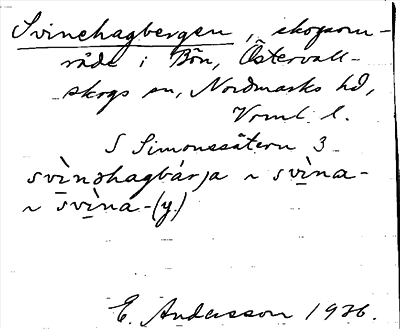 Svinehagbergen, skogsom-
råde i Bön, Östervall-
skogs sn, Nordmarks hd,
Vrml l.
S Simonssätern 3
svìnəhagbárja ~ svìna-
~ svìna-(y.)
E. Andersson 1936.